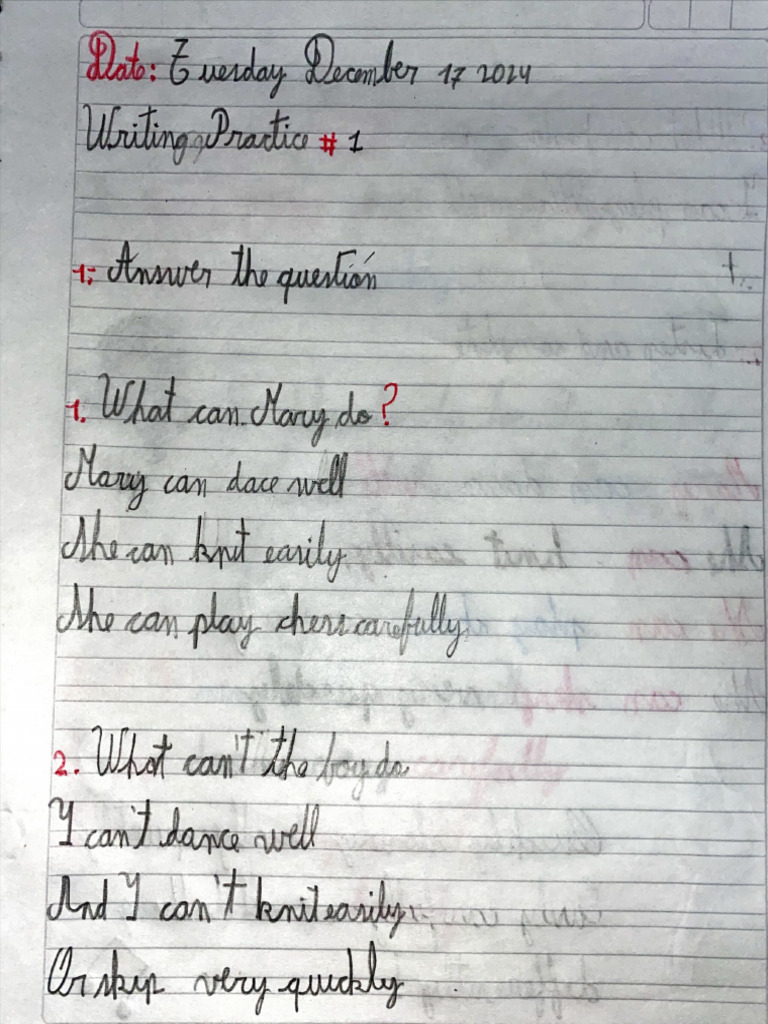 Date: Tuesday December 17 2024
Writing Practice # 1
1: Answer the question
1. What can Mary do?
Mary can dace well
She can knit easily
She can play chess carefully
2. What can't the boy do
I can't dance well
And I can't knit easily
Or skip very quickly